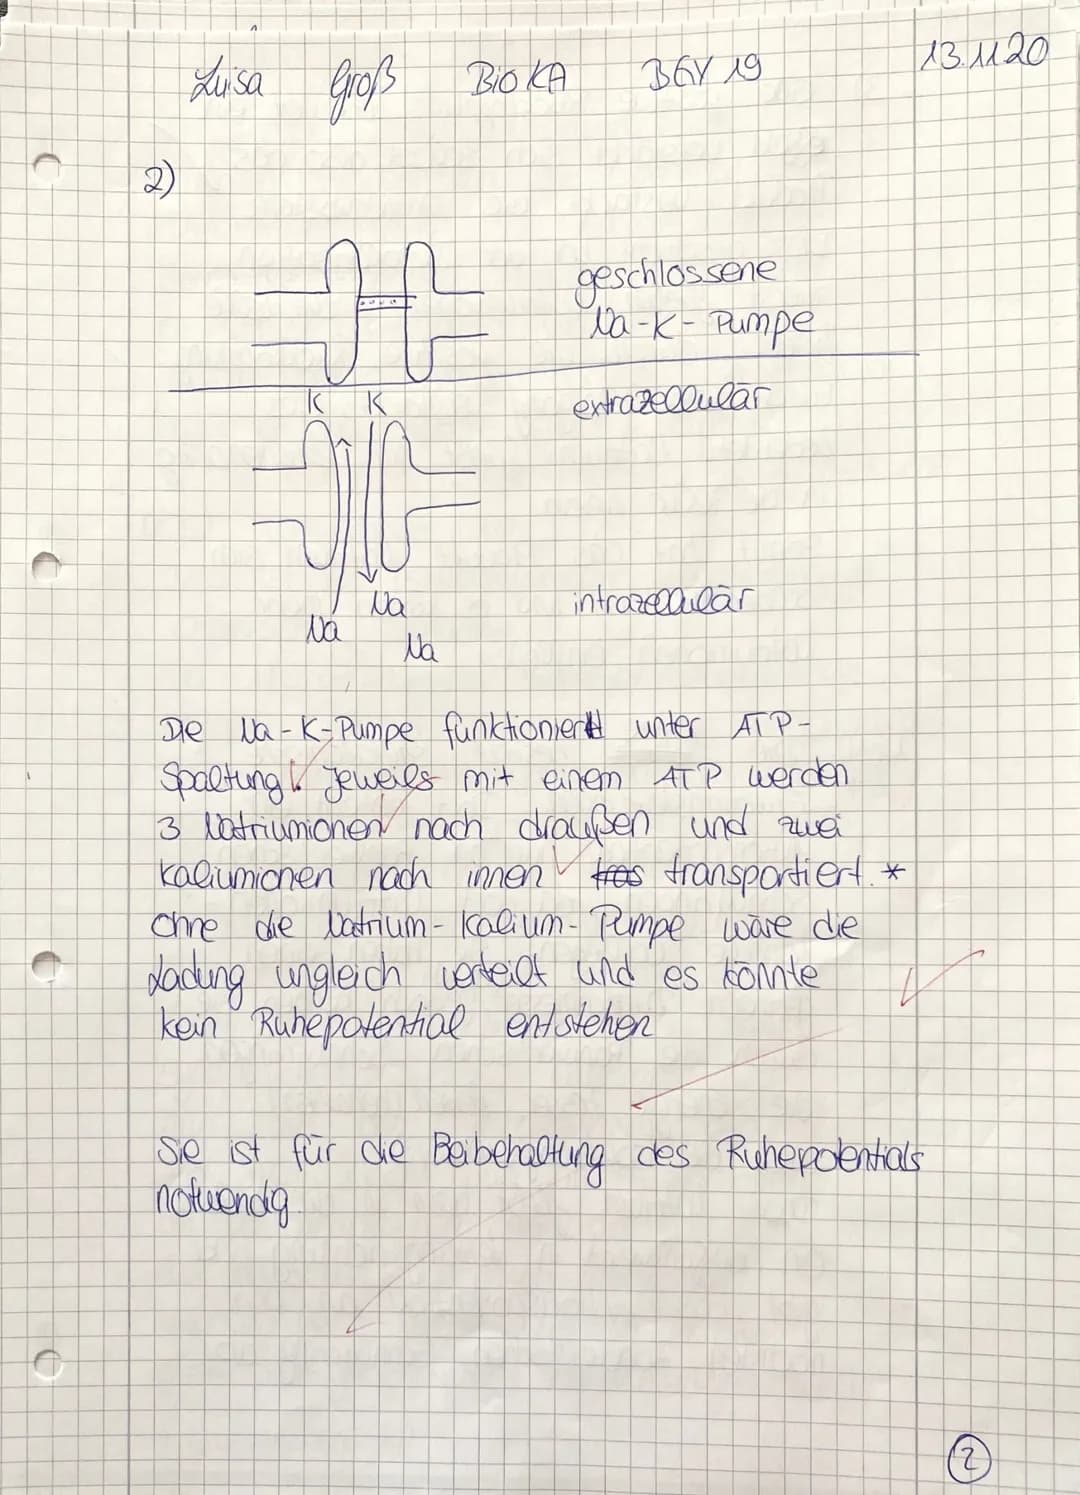 Luisa Groß BIO KA BGY 19 13.11.20
2)
geschlossene
Na-K-Pumpe
K K extrazellulär
Na intrazellulär
Na
Na
Die Na-K-Pumpe funktioniert unter ATP-
Spaltung. Jeweils mit einem ATP werden
3 Natriumionen nach draußen und zwei
Kaliumionen nach innen tras transportiert. *
Ohne die Natrium-Kalium-Pumpe wäre die
Ladung ungleich verteilt und es könnte
kein Ruhepotential entstehen
Sie ist für die Beibehaltung des Ruhepotentials
notwendig.
2